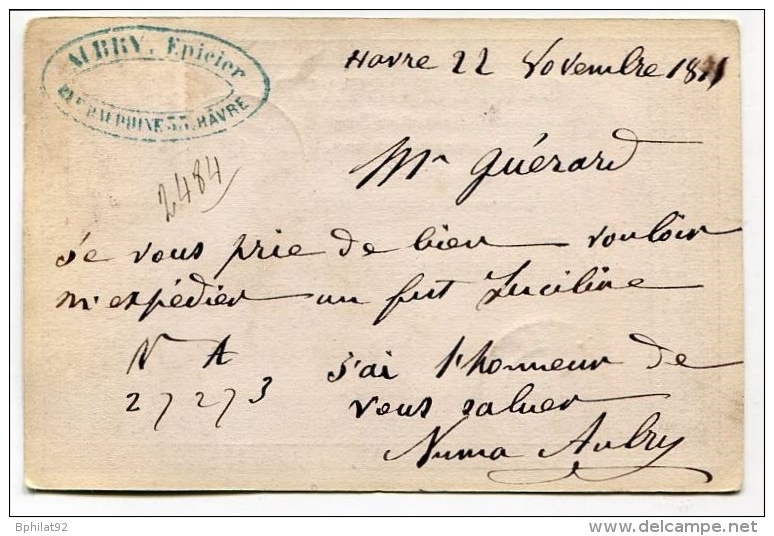 AUBRY, Epicier
RUE DAUPHINE 55, HAVRE
Havre 22 Novembre 18
2484
Mr Guérard
Je vous prie de bien vouloir
m'expédier un fut Luciline
N A
27273
J'ai l'honneur de
vous saluer
Numa Aubry
Bphilat92
delcampe.net